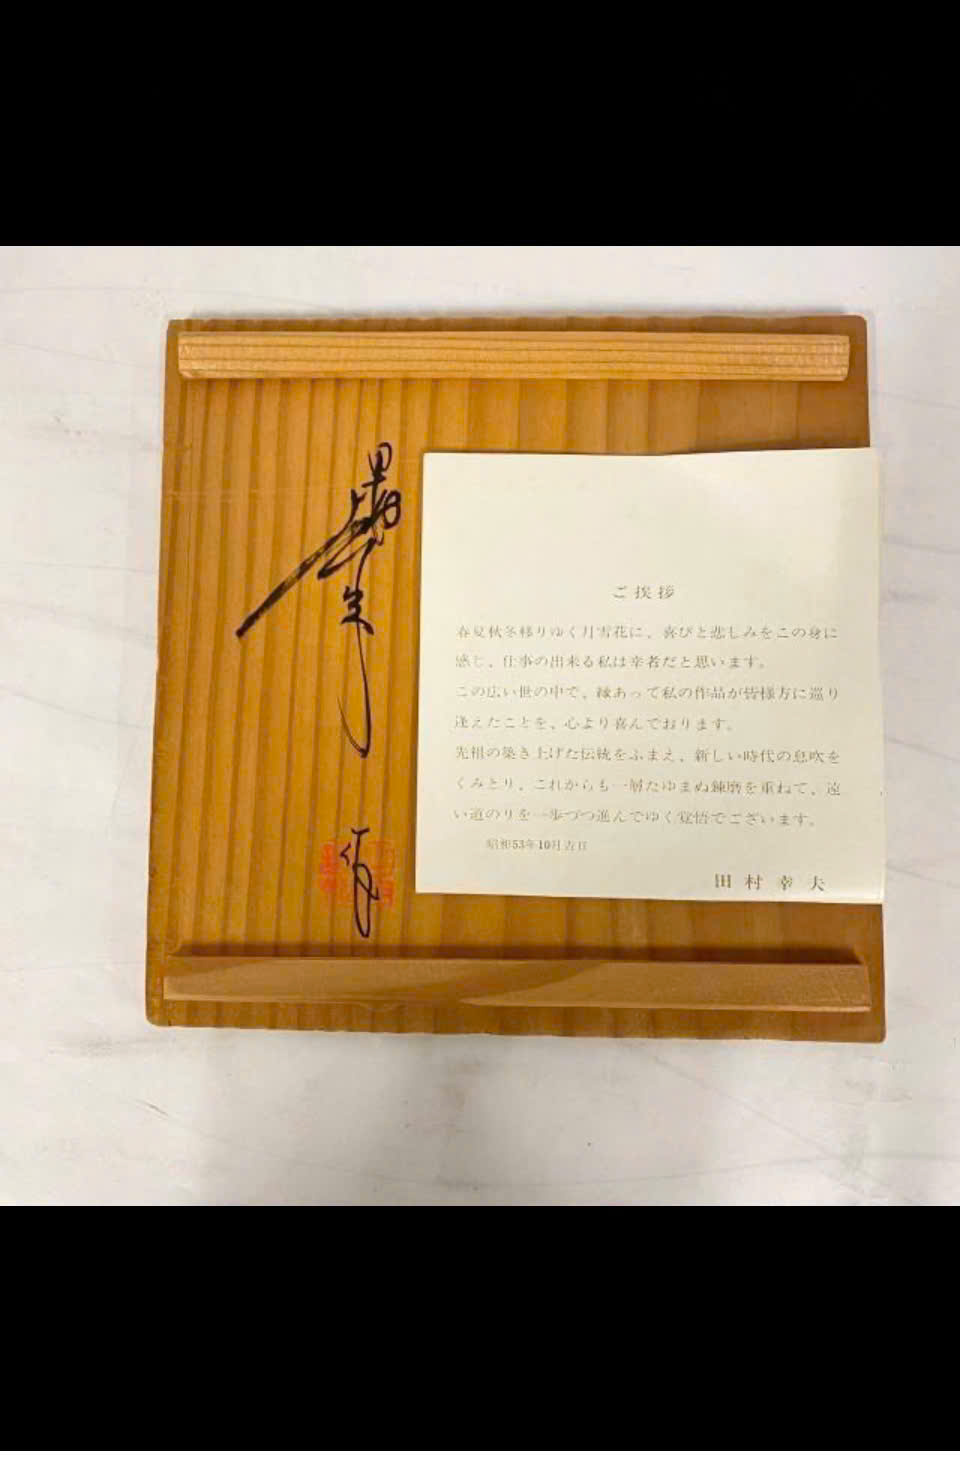 ご挨拶
春夏秋冬移りゆく月雪花に、喜びと悲しみをこの身に
感じ、仕事の出来る私は幸者だと思います。
この広い世の中で、縁あって私の作品が皆様方に巡り
逢えたことを、心より喜んでおります。
先祖の築き上げた伝統をふまえ、新しい時代の息吹を
くみとり、これからも一層たゆまぬ錬磨を重ねて、遠
い道のりを一歩づつ進んでゆく覚悟でございます。
昭和53年10月吉日
田村幸夫
作